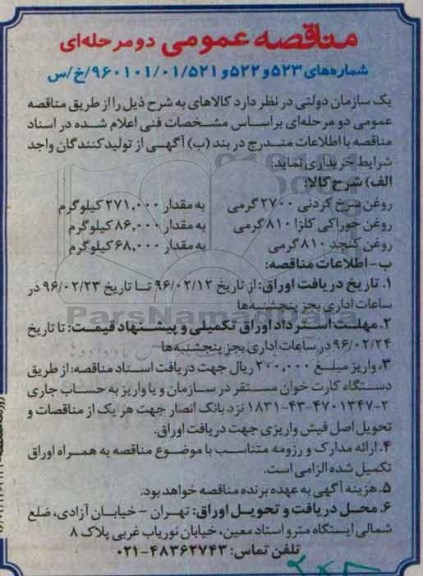 مناقصه عمومی دو مرحله‌ای
شماره‌های ۵۲۳ و ۵۲۲ و ۹۶۰۱۰۱/۰۱/۵۲۱/خ/س
یک سازمان دولتی در نظر دارد کالاهای به شرح ذیل را از طریق مناقصه
عمومی دو مرحله‌ای براساس مشخصات فنی اعلام شده در اسناد
مناقصه با اطلاعات مندرج در بند (ب) آگهی از تولیدکنندگان واجد
شرایط خریداری نماید:
الف) شرح کالا:
روغن سرخ کردنی ۲۷۰۰ گرمی به مقدار ۲۷۱,۰۰۰ کیلوگرم
روغن خوراکی کلزا ۸۱۰ گرمی به مقدار ۸۶,۰۰۰ کیلوگرم
روغن کنجد ۸۱۰ گرمی به مقدار ۶۸,۰۰۰ کیلوگرم
ب- اطلاعات مناقصه:
۱. تاریخ دریافت اوراق: از تاریخ ۹۶/۰۲/۱۲ تا تاریخ ۹۶/۰۲/۲۳ در
ساعات اداری بجز پنجشنبه‌ها
ParsNamadData
۲. مهلت استرداد اوراق تکمیلی و پیشنهاد قیمت: تا تاریخ
۹۶/۰۲/۲۴ در ساعات اداری بجز پنجشنبه‌ها
۳. واریز مبلغ ۲۰۰,۰۰۰ ریال جهت دریافت اسناد مناقصه: از طریق
دستگاه کارت خوان مستقر در سازمان و یا واریز به حساب جاری
۱۸۳۱-۴۳-۴۷۰۱۳۴۷-۲ نزد بانک انصار جهت هر یک از مناقصات و
تحویل اصل فیش واریزی جهت دریافت اوراق.
۴. ارائه مدارک و رزومه متناسب با موضوع مناقصه به همراه اوراق
تکمیل شده الزامی است.
۵. هزینه آگهی به عهده برنده مناقصه خواهد بود.
۶. محل دریافت و تحویل اوراق: تهران - خیابان آزادی، ضلع
شمالی ایستگاه مترو استاد معین، خیابان نوریاب غربی پلاک ۸
تلفن تماس: ۴۸۳۶۲۷۴۳-۰۲۱